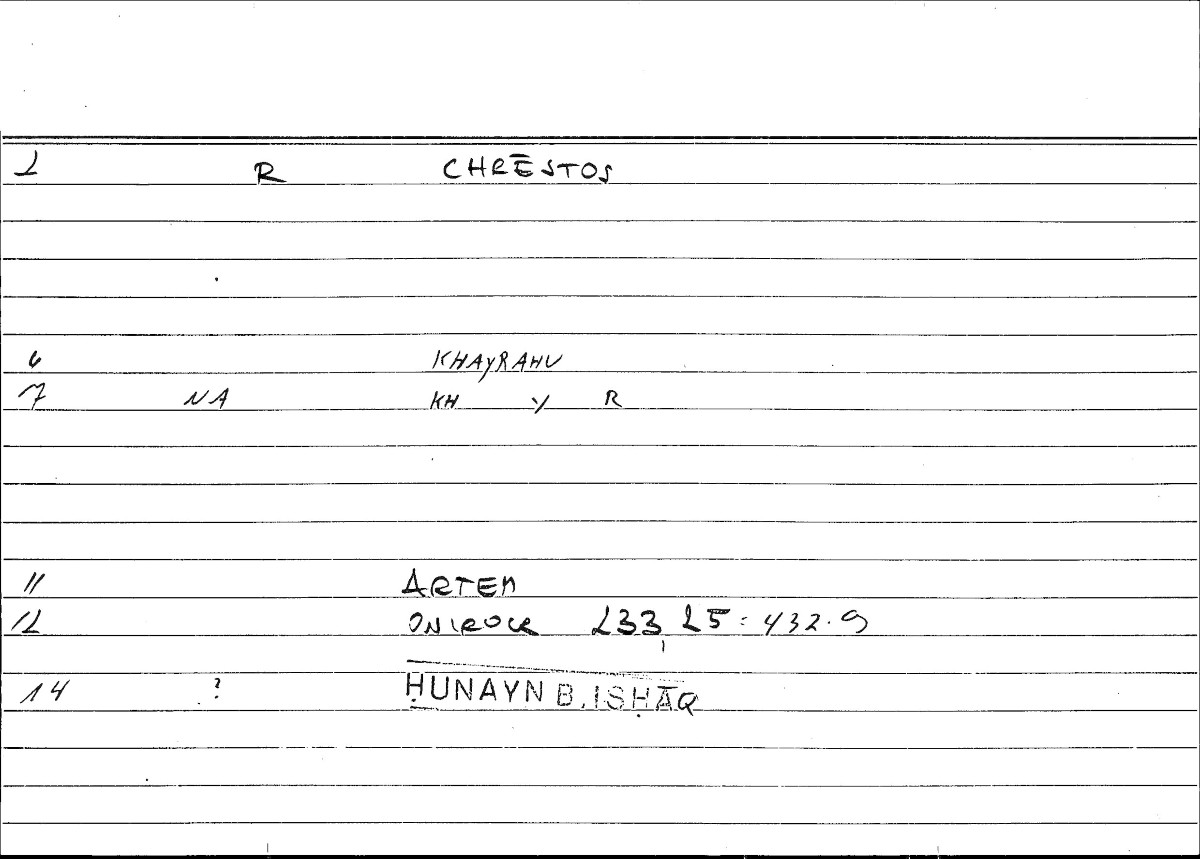 2 R CHRĒSTOS
6 KHAYRAHU
7 NA KH Y R
11 ARTEM
12 ONIROCR 233, 25 : 432.9
14 ? ḤUNAYN B. ISḤĀQ